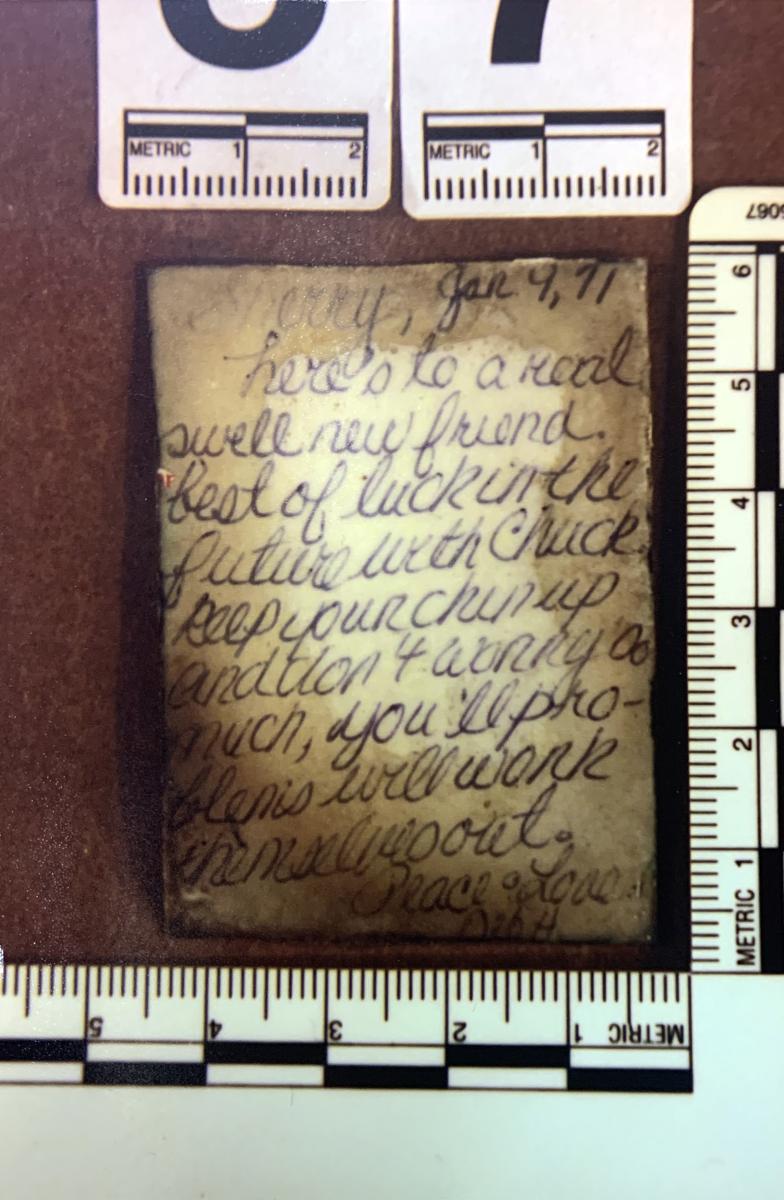 6 7
METRIC 1 2
METRIC 1 2
Sherry, Jan 9, 71
here's to a real
swell new friend.
best of luck in the
future with Chuck.
keep your chin up
and don't worry so
much, you'll pro-
blems will work
themselves out.
Peace & Love
Deb H
6
5
4
3
2
METRIC 1
5 4 3 2 1 METRIC